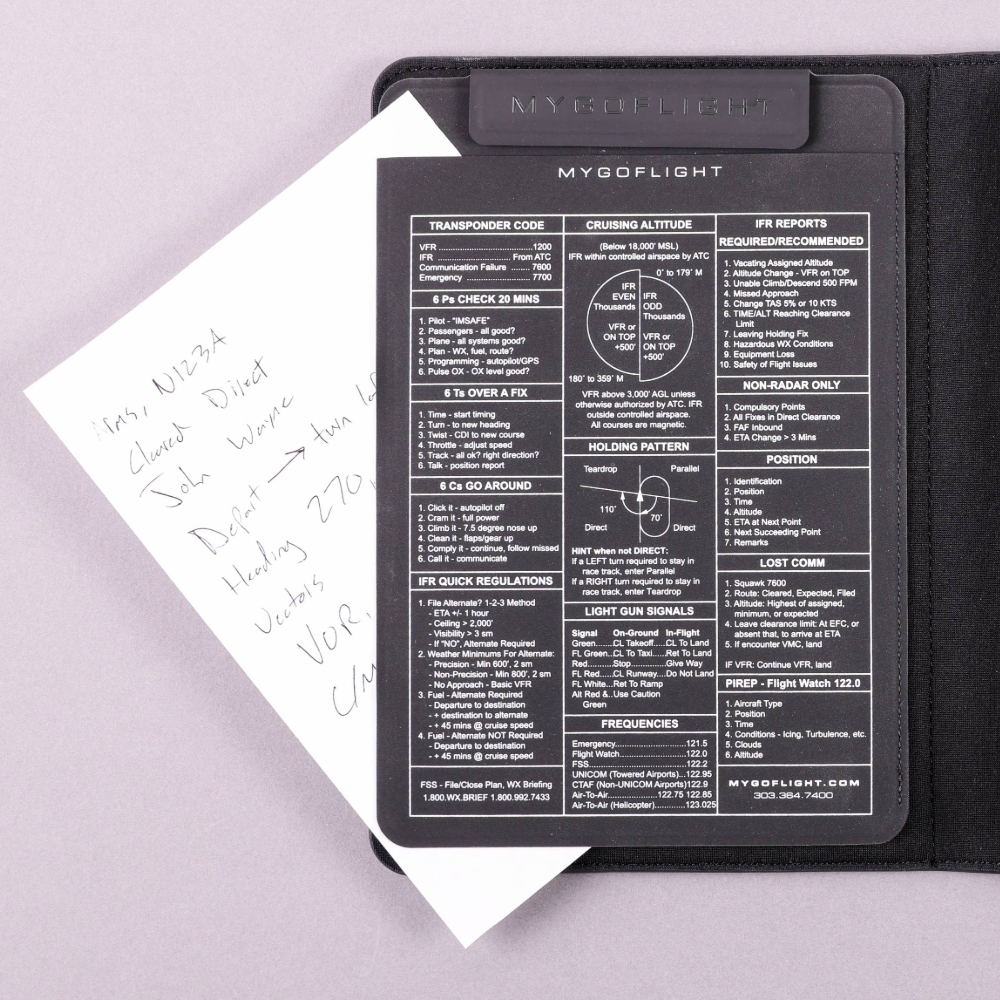 MYGOFLIGHT
MYGOFLIGHT
TRANSPONDER CODE
VFR ........................................ 1200
IFR ................................ From ATC
Communication Failure ....... 7600
Emergency ............................ 7700
6 Ps CHECK 20 MINS
1. Pilot - "IMSAFE"
2. Passengers - all good?
3. Plane - all systems good?
4. Plan - WX, fuel, route?
5. Programming - autopilot/GPS
6. Pulse OX - OX level good?
6 Ts OVER A FIX
1. Time - start timing
2. Turn - to new heading
3. Twist - CDI to new course
4. Throttle - adjust speed
5. Track - all ok? right direction?
6. Talk - position report
6 Cs GO AROUND
1. Click it - autopilot off
2. Cram it - full power
3. Climb it - 7.5 degree nose up
4. Clean it - flaps/gear up
5. Comply it - continue, follow missed
6. Call it - communicate
IFR QUICK REGULATIONS
1. File Alternate? 1-2-3 Method
- ETA +/- 1 hour
- Ceiling > 2,000'
- Visibility > 3 sm
- If "NO", Alternate Required
2. Weather Minimums For Alternate:
- Precision - Min 600', 2 sm
- Non-Precision - Min 800', 2 sm
- No Approach - Basic VFR
3. Fuel - Alternate Required
- Departure to destination
- + destination to alternate
- + 45 mins @ cruise speed
4. Fuel - Alternate NOT Required
- Departure to destination
- + 45 mins @ cruise speed
FSS - File/Close Plan, WX Briefing
1.800.WX.BRIEF 1.800.992.7433
CRUISING ALTITUDE
(Below 18,000' MSL)
IFR within controlled airspace by ATC
0˚ to 179˚ M
IFR
EVEN
Thousands
VFR or
ON TOP
+500'
IFR
ODD
Thousands
VFR or
ON TOP
+500'
180˚ to 359˚ M
VFR above 3,000' AGL unless
otherwise authorized by ATC. IFR
outside controlled airspace.
All courses are magnetic.
HOLDING PATTERN
Teardrop Parallel
110˚ 70˚
Direct Direct
HINT when not DIRECT:
If a LEFT turn required to stay in
race track, enter Parallel
If a RIGHT turn required to stay in
race track, enter Teardrop
LIGHT GUN SIGNALS
Signal On-Ground In-Flight
Green.......CL Takeoff....CL To Land
FL Green..CL To Taxi.....Ret To Land
Red...........Stop..............Give Way
FL Red.....CL Runway....Do Not Land
FL White...Ret To Ramp
Alt Red &..Use Caution
Green
FREQUENCIES
Emergency........................121.5
Flight Watch.......................122.0
FSS.....................................122.2
UNICOM (Towered Airports)...122.95
CTAF (Non-UNICOM Airports)122.9
Air-To-Air....................122.75 122.85
Air-To-Air (Helicopter)..........123.025
IFR REPORTS
REQUIRED/RECOMMENDED
1. Vacating Assigned Altitude
2. Altitude Change - VFR on TOP
3. Unable Climb/Descend 500 FPM
4. Missed Approach
5. Change TAS 5% or 10 KTS
6. TIME/ALT Reaching Clearance
Limit
7. Leaving Holding Fix
8. Hazardous WX Conditions
9. Equipment Loss
10. Safety of Flight Issues
NON-RADAR ONLY
1. Compulsory Points
2. All Fixes in Direct Clearance
3. FAF Inbound
4. ETA Change > 3 Mins
POSITION
1. Identification
2. Position
3. Time
4. Altitude
5. ETA at Next Point
6. Next Succeeding Point
7. Remarks
LOST COMM
1. Squawk 7600
2. Route: Cleared, Expected, Filed
3. Altitude: Highest of assigned,
minimum, or expected
4. Leave clearance limit: At EFC, or
absent that, to arrive at ETA
5. If encounter VMC, land
IFR VMC: Continue VFR, land
PIREP - Flight Watch 122.0
1. Aircraft Type
2. Position
3. Time
4. Conditions - Icing, Turbulence, etc.
5. Clouds
6. Altitude
MYGOFLIGHT.COM
303.364.7400
N123A
Cleared Direct
John Wayne
Depart → turn
Heading 270,
Vectors
VOR,